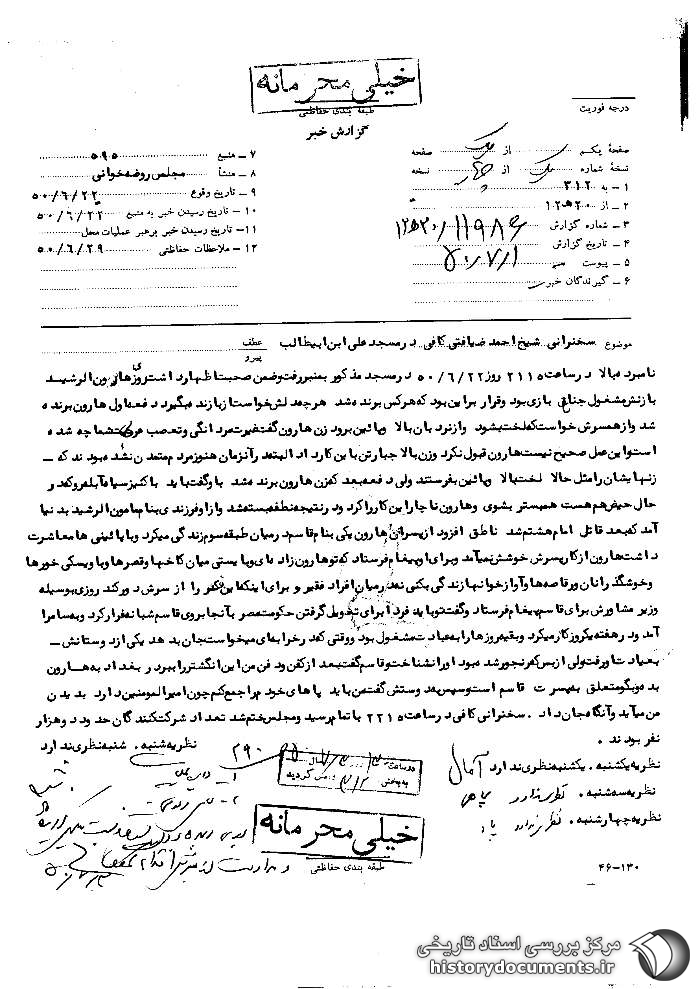 خیلی محرمانه
طبقه بندی حفاظتی
گزارش خبر
درجه فوریت
صفحهٔ یکم از یک صفحه
نسخهٔ شماره یک از چهار نسخه
۱ – به ۳۱۲
۲ – از ۱۲ه۲۰
۳ – شماره گزارش ۱۲ه۲۰/۱۱۹۸۶
۴ – تاریخ گزارش ۵۰/۷/۱
۵ – پیوست
۶ – گیرندگان خبر
۷ – منبع ۵۹۵
۸ – منشأ مجلس روضه‌خوانی
۹ – تاریخ وقوع ۵۰/۶/۲۲
۱۰ – تاریخ رسیدن خبر به منبع ۵۰/۶/۲۲
۱۱ – تاریخ رسیدن خبر برهبر عملیات محل
۱۲ – ملاحظات حفاظتی ۵۰/۶/۲۹
موضوع سخنرانی شیخ احمد ضیافتی کافی در مسجد علی ابن ابیطالب
عطف
پیرو
نامبرده بالا در ساعت ۲۱۱۵ روز ۵۰/۶/۲۲ در مسجد مذکور بمنبر رفت و ضمن صحبت اظهار داشت روزی هارون الرشید
با زنش مشغول جناق بازی بود و قرار بر این بود که هر کس برنده شد هر چه دلش خواست از بازنده بگیرد دفعه اول هارون برنده
شد و از همسرش خواست که لخت بشود و از نردبان بالا و پائین برود زن هارون گفت غیرت مردانگی و تعصب عربی شما چه شده
است و این عمل صحیح نیست هارون قبول نکرد و زن بالاجبار تن باین کار داد البته در آن زمان هنوز مردم متمدن نشده بودند که –
زنهایشان را مثل حالا لخت بالا و پائین بفرستند ولی دفعه بعد که زن هارون برنده شد باو گفت باید با کنیز سیاه آبله رو که در
حال حیض هم هست همبستر بشوی و هارون ناچار این کار را کرد و در نتیجه نطفه بسته شد و از او فرزندی بنام مامون الرشید بدنیا
آمد که بعد قاتل امام هشتم شد ناطق افزود از پسران هارون یکی بنام قاسم در میان طبقه سوم زندگی میکرد و با پائینی ها معاشرت
داشت هارون از کار پسرش خوشش نمیآمد و برای او پیغام فرستاد که تو هارون زاده‌ای و بایستی میان کاخها و قصرها و با ویسکی خورها
و خوشگذرانان و رقاصه‌ها و آوازخوانها زندگی بکنی نه در میان افراد فقیر و برای اینکه این فکر را از سرش دور کند روزی بوسیله
وزیر مشاورش برای قاسم پیغام فرستاد و گفت تو باید فردا برای تحویل گرفتن حکومت مصر بآنجا بروی قاسم شبانه فرار کرد و به سامرا
آمد و در هفته یکروز کار میکرد و بقیه روزها را به عبادت مشغول بود و وقتی که در خرابه‌ای میخواست جان بدهد یکی از دوستانش –
بعیادت او رفت ولی از بس که رنجور شده بود او را نشناخت و قاسم گفت بعد از کفن و دفن من این انگشتر را ببر در بغداد به هارون
بده و بگو متعلق به پسرت قاسم است و سپس به دوستش گفت من باید پاهای خودم را جمع کنم چون امیرالمومنین دارد بدیدن
من میآید و آنگاه جان داد . سخنرانی کافی در ساعت ۲۲۱۵ با تمام رسید و مجلس ختم شد تعداد شرکت کنندگان حدود دو هزار
نفر بودند .
نظریه شنبه . شنبه نظری ندارد
نظریه یکشنبه . یکشنبه نظری ندارد آمال
نظریه سه‌شنبه . نظری ندارد
نظریه چهارشنبه . نظری ندارد
خیلی محرمانه
طبقه بندی حفاظتی
۴۶–۱۳۰
مرکز بررسی اسناد تاریخی
historydocuments.ir